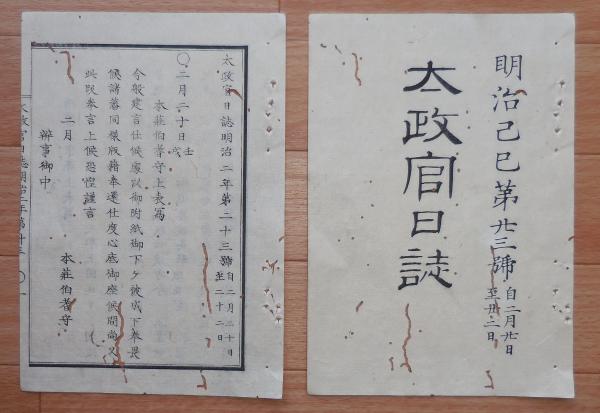 明治己巳第廿三號 自二月廿日 至廿二日
太政官日誌
太政官日誌明治二年第二十三號 自二月二十日 至二十二日
〇二月二十日 壬戌
本莊伯耆守上表寫
今般建言仕候處以御附紙御下ケ被成下奉畏
候諸藩同樣版籍奉還仕度心底御座候間尚又
此段奉言上候恐惶謹言
二月 本莊伯耆守
辨事御中
太政官日誌明治二年第廿三 〇一